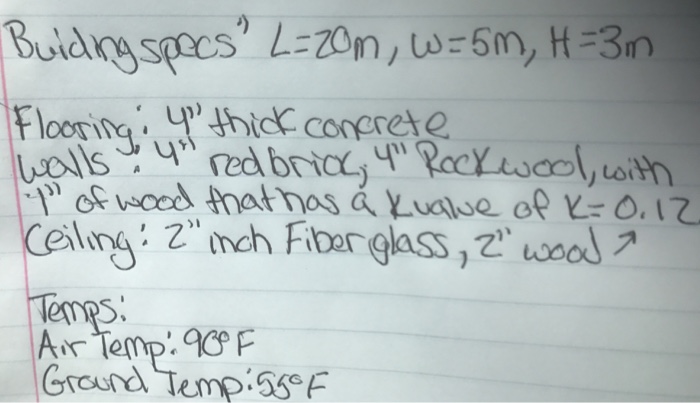 Buiding specs" L=20m, W=5m, H=3m
Flooring: 4" thick concrete
Walls: 4" red brick, 4" Rockwool, with
1" of wood that has a k value of K=0.12
Ceiling: 2" inch Fiberglass, 2" wood ↗
Temps:
Air Temp: 90°F
Ground Temp: 55°F